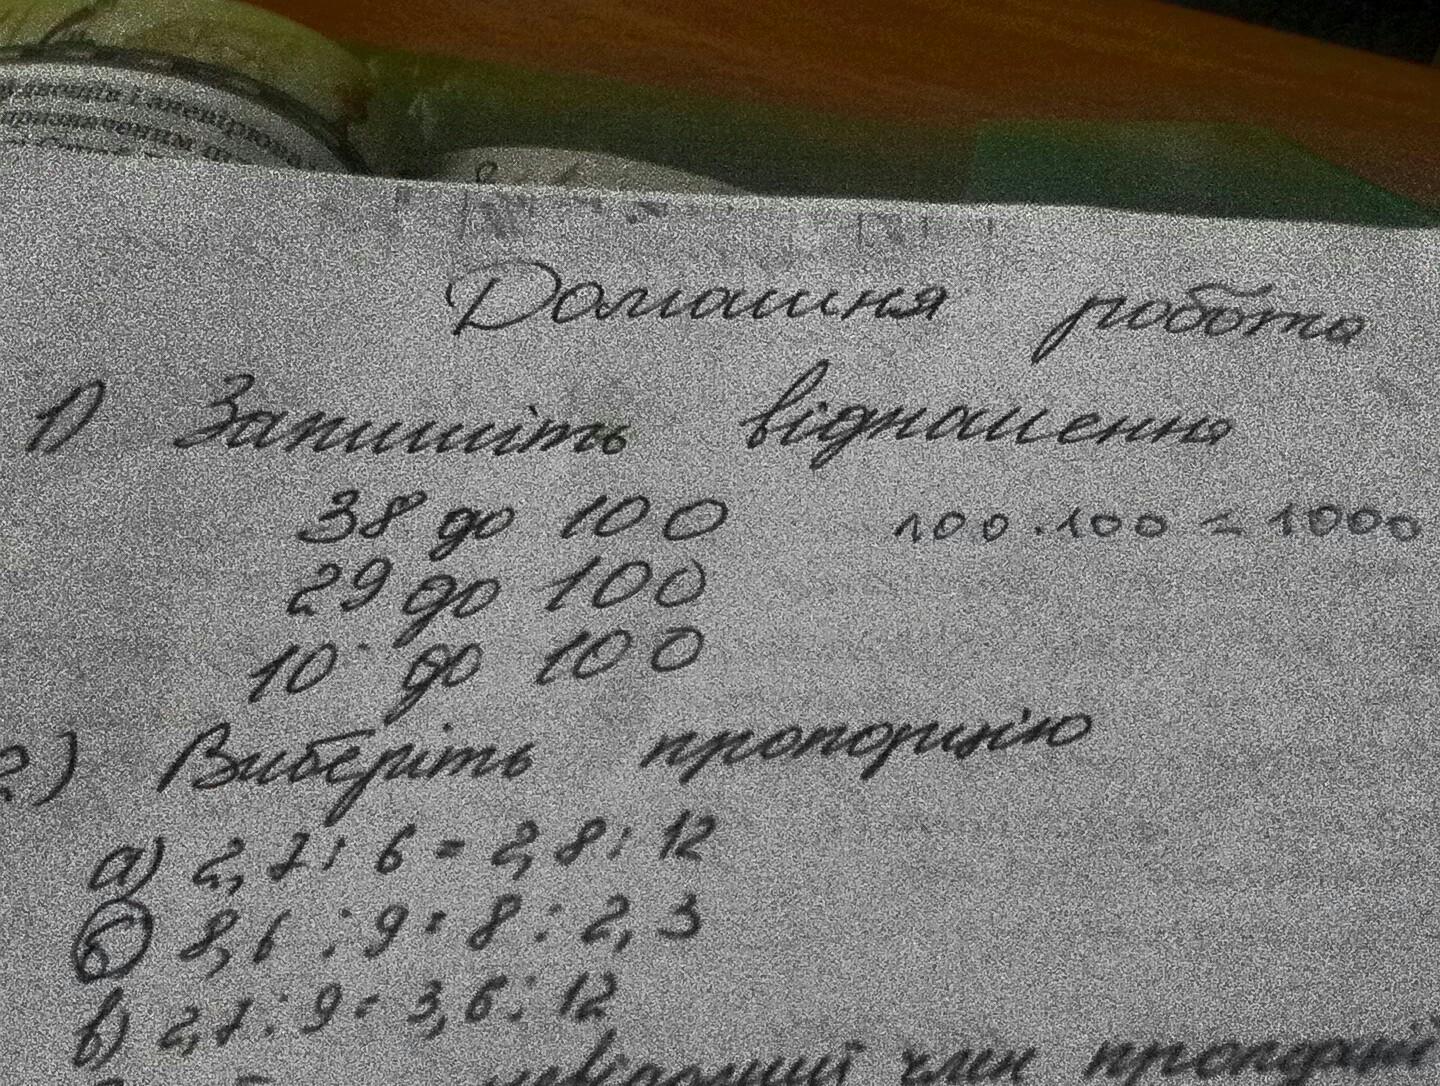 призначеним
Домашня робота
1) Запишіть відношення
38 до 100 100 · 100 = 1000
29 до 100
10 до 100
2) Виберіть пропорцію
а) 2,7 : 6 = 2,8 : 12
б) 8,6 : 9 = 8 : 2,3
в) 2,7 : 9 = 3,6 : 12
член